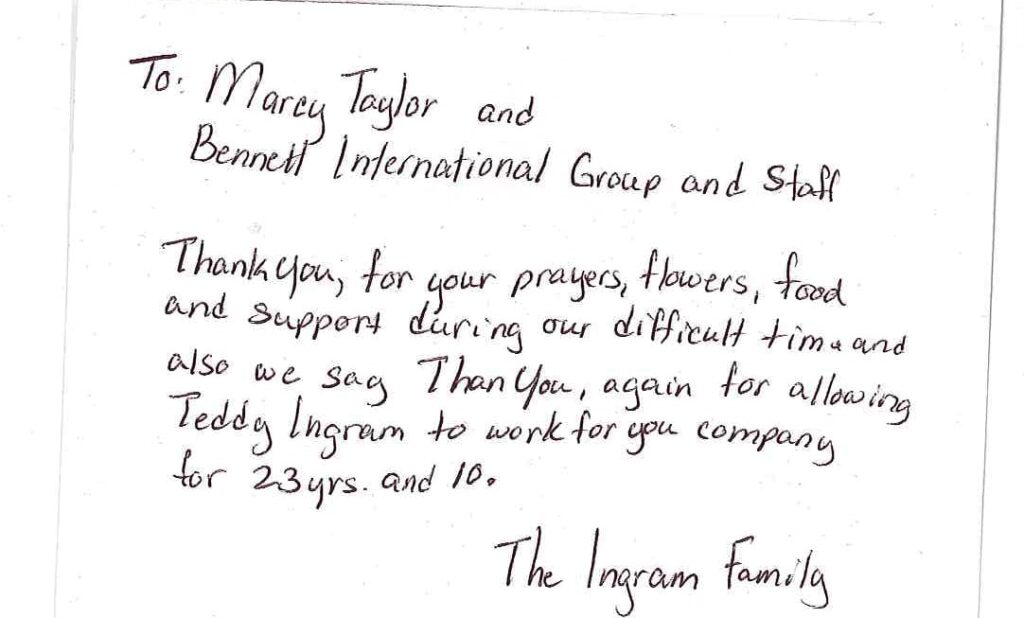 To: Marcy Taylor and
Bennett International Group and Staff
Thank you, for your prayers, flowers, food
and support during our difficult time and
also we say Than You, again for allowing
Teddy Ingram to work for you company
for 23 yrs. and 10.
The Ingram Family